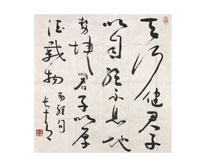 天行健君子
以自强不息地
势坤君子以厚
德载物 易经句